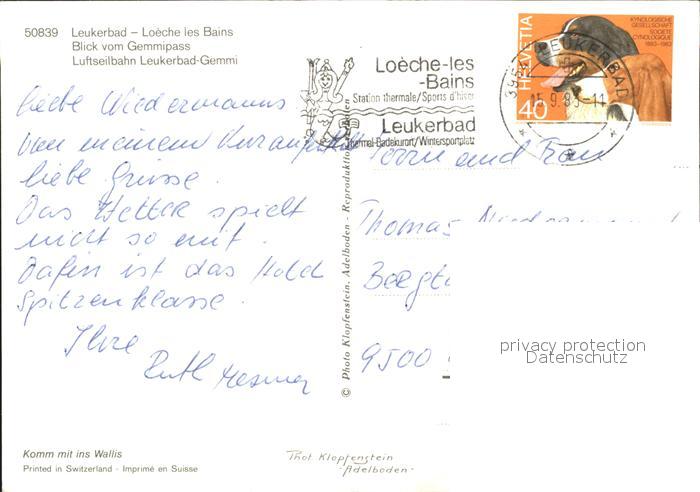 50839 Leukerbad – Loèche les Bains
Blick vom Gemmipass
Luftseilbahn Leukerbad-Gemmi
Loèche-les
-Bains
Station thermale/Sports d'hiver
Leukerbad
Thermal-Badekurort/Wintersportplatz
HELVETIA
40
KYNOLOGISCHE
GESELLSCHAFT
SOCIETE
CYNOLOGIQUE
1883-1983
LEUKERBAD
15.9.83-11
liebe Wiedermanns
von meinem
liebe Grüsse.
Das Wetter spielt
nicht so mit.
Dafür ist das Hotel
Spitzenklasse.
Ihre
Ruth
Herrn und Frau
Thomas
9500
© Photo Klopfenstein, Adelboden - Reproduktion verboten
privacy protection
Datenschutz
Komm mit ins Wallis
Printed in Switzerland - Imprimé en Suisse
Phot. Klopfenstein
-Adelboden-